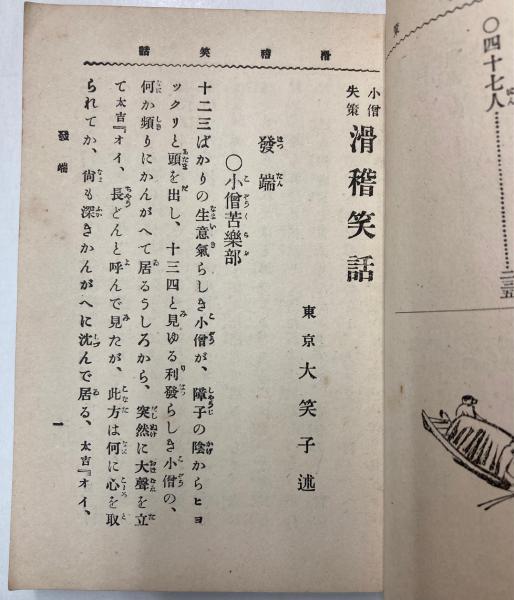 〇四十七人……………………二三五
滑稽笑話
小僧失策 滑稽笑話
東京 大笑子述
發端
〇小僧苦樂部
十二三ばかりの生意氣らしき小僧が、障子の陰からヒヨ
ックリと頭を出し、十三四と見ゆる利發らしき小僧の、
何か頻りにかんがへて居るうしろから、突然に大聲を立
て太吉『オイ、長どんと呼んで見たが、此方は何に心を取
られてか、尙も深きかんがへに沈んで居る、太吉『オイ、
發端
一